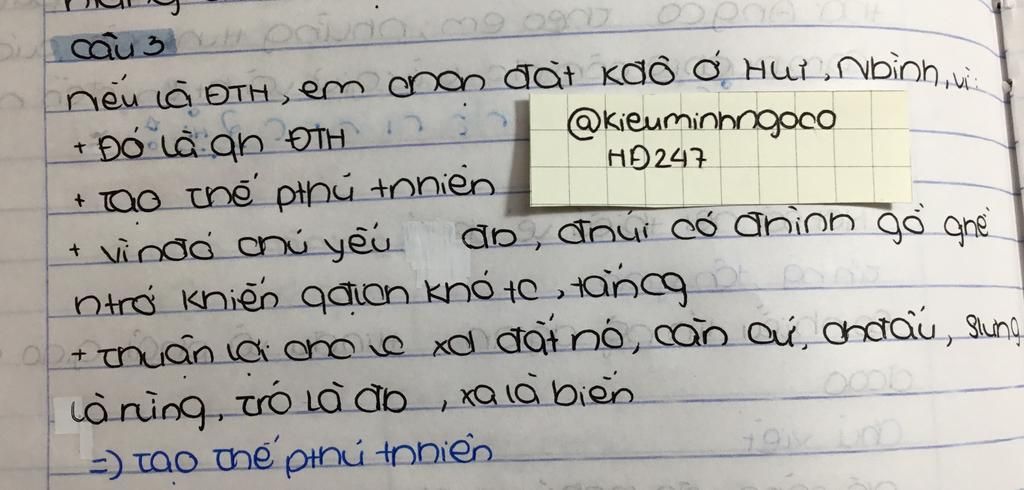 câu 3
nếu là ĐTH, em chọn đặt kđô ở Hưi, Nbình, vì:
@kieuminhngoco
HĐ247
+ Đó là qh ĐTH
+ tạo thế pthủ tnhiên
+ vì nđó chủ yếu đb, đnúi có đhình gồ ghề
ntrở khiến qđich khó tc, tấncg
+ thuận lợi cho vc xd đất nc, căn cứ, chđấu, slưng
là rừng, trc là đb, xa là biển
=) tạo thế pthủ tnhiên